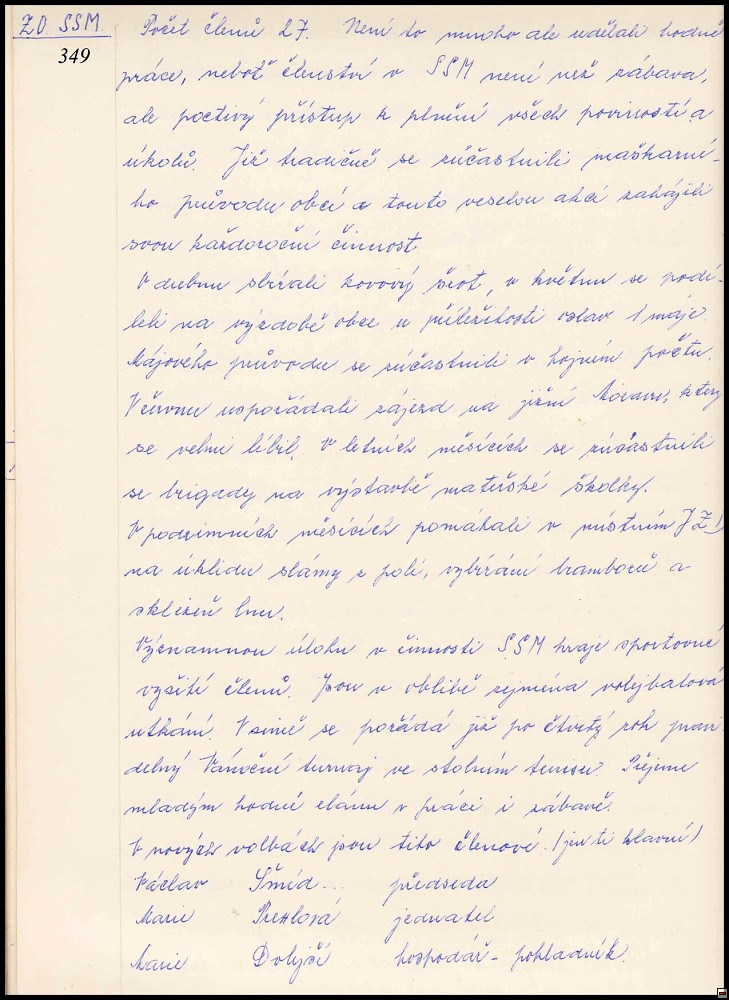 ZO SSM.
349
Počet členů 27. Není to mnoho ale udělali hodně
práce, neboť členství v SSM není než zábava,
ale poctivý přístup k plnění všech povinností a
úkolů. Již tradičně se zúčastnili maškarní-
ho průvodu obcí a touto veselou akcí zahájili
svou každoroční činnost
V dubnu sbírali kovový šrot, v květnu se podí-
leli na výzdobě obce u příležitosti oslav 1 máje.
Májového průvodu se zúčastnili v hojném počtu.
V červnu uspořádali zájezd na jižní Moravu, který
se velmi líbil. V letních měsících se zúčastnili
se brigady na výstavbě mateřské školky.
V podzimních měsících pomáhali v místním JZD
na úklidu slámy z polí, vybírání bramborů a
sklizeň lnu.
Významnou úlohu v činnosti SSM hraje sportovně
vyžití členů. Jsou v oblibě zejména volejbalová
utkání. V zimě se pořádá již po čtvrtý rok pravi-
delný Vánoční turnaj ve stolním tenisu. Přejeme
mladým hodně elánu v práci i zábavě.
V nových volbách jsou tito členové. (jen ti hlavní)
Václav Šmíd... předseda
Marie jednatel
Marie Dolejší hospodář - pokladník.